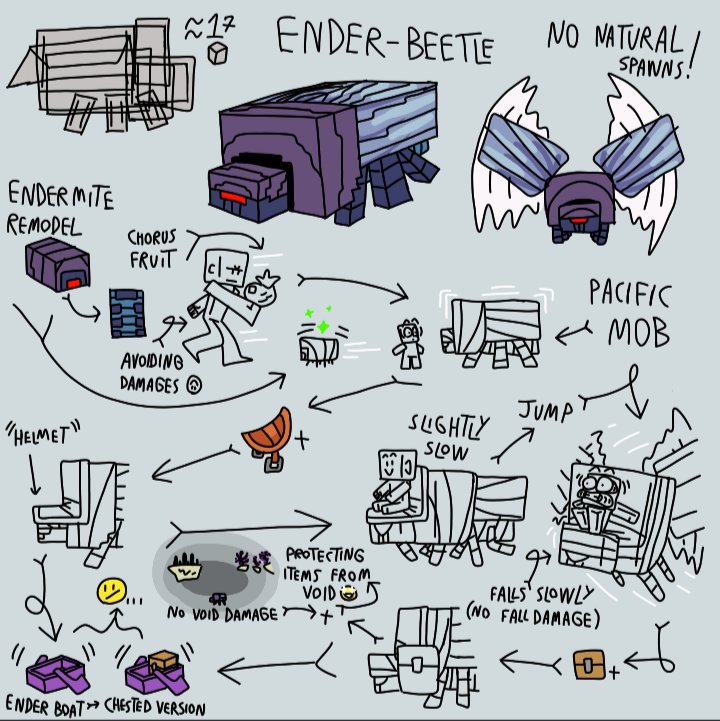 ≈17
ENDER-BEETLE
NO NATURAL
SPAWNS!
ENDERMITE
REMODEL
CHORUS
FRUIT
AVOIDING
DAMAGES
PACIFIC
MOB
"HELMET"
+
SLIGHTLY
SLOW
JUMP
PROTECTING
ITEMS FROM
VOID
NO VOID DAMAGE
+
FALLS SLOWLY
(NO FALL DAMAGE)
...
+
ENDER BOAT
CHESTED VERSION